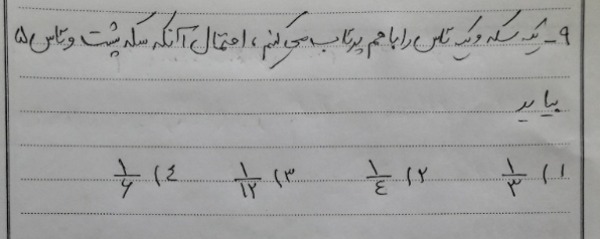 ۹- یک سکه و یک تاس را با هم پرتاب می کنیم، احتمال آنکه سکه پشت و تاس ۵
بیاید
۱) ۱/۳ ۲) ۱/٤ ۳) ۱/۱۲ ٤) ۱/۶